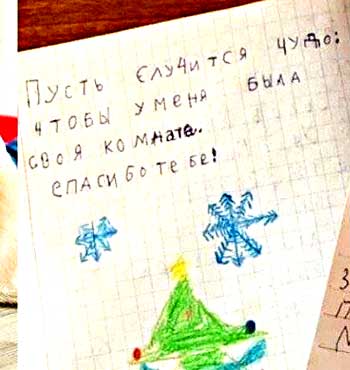 Пусть случится чудо:
чтобы у меня была
своя комната.
спасибо тебе!
З
П